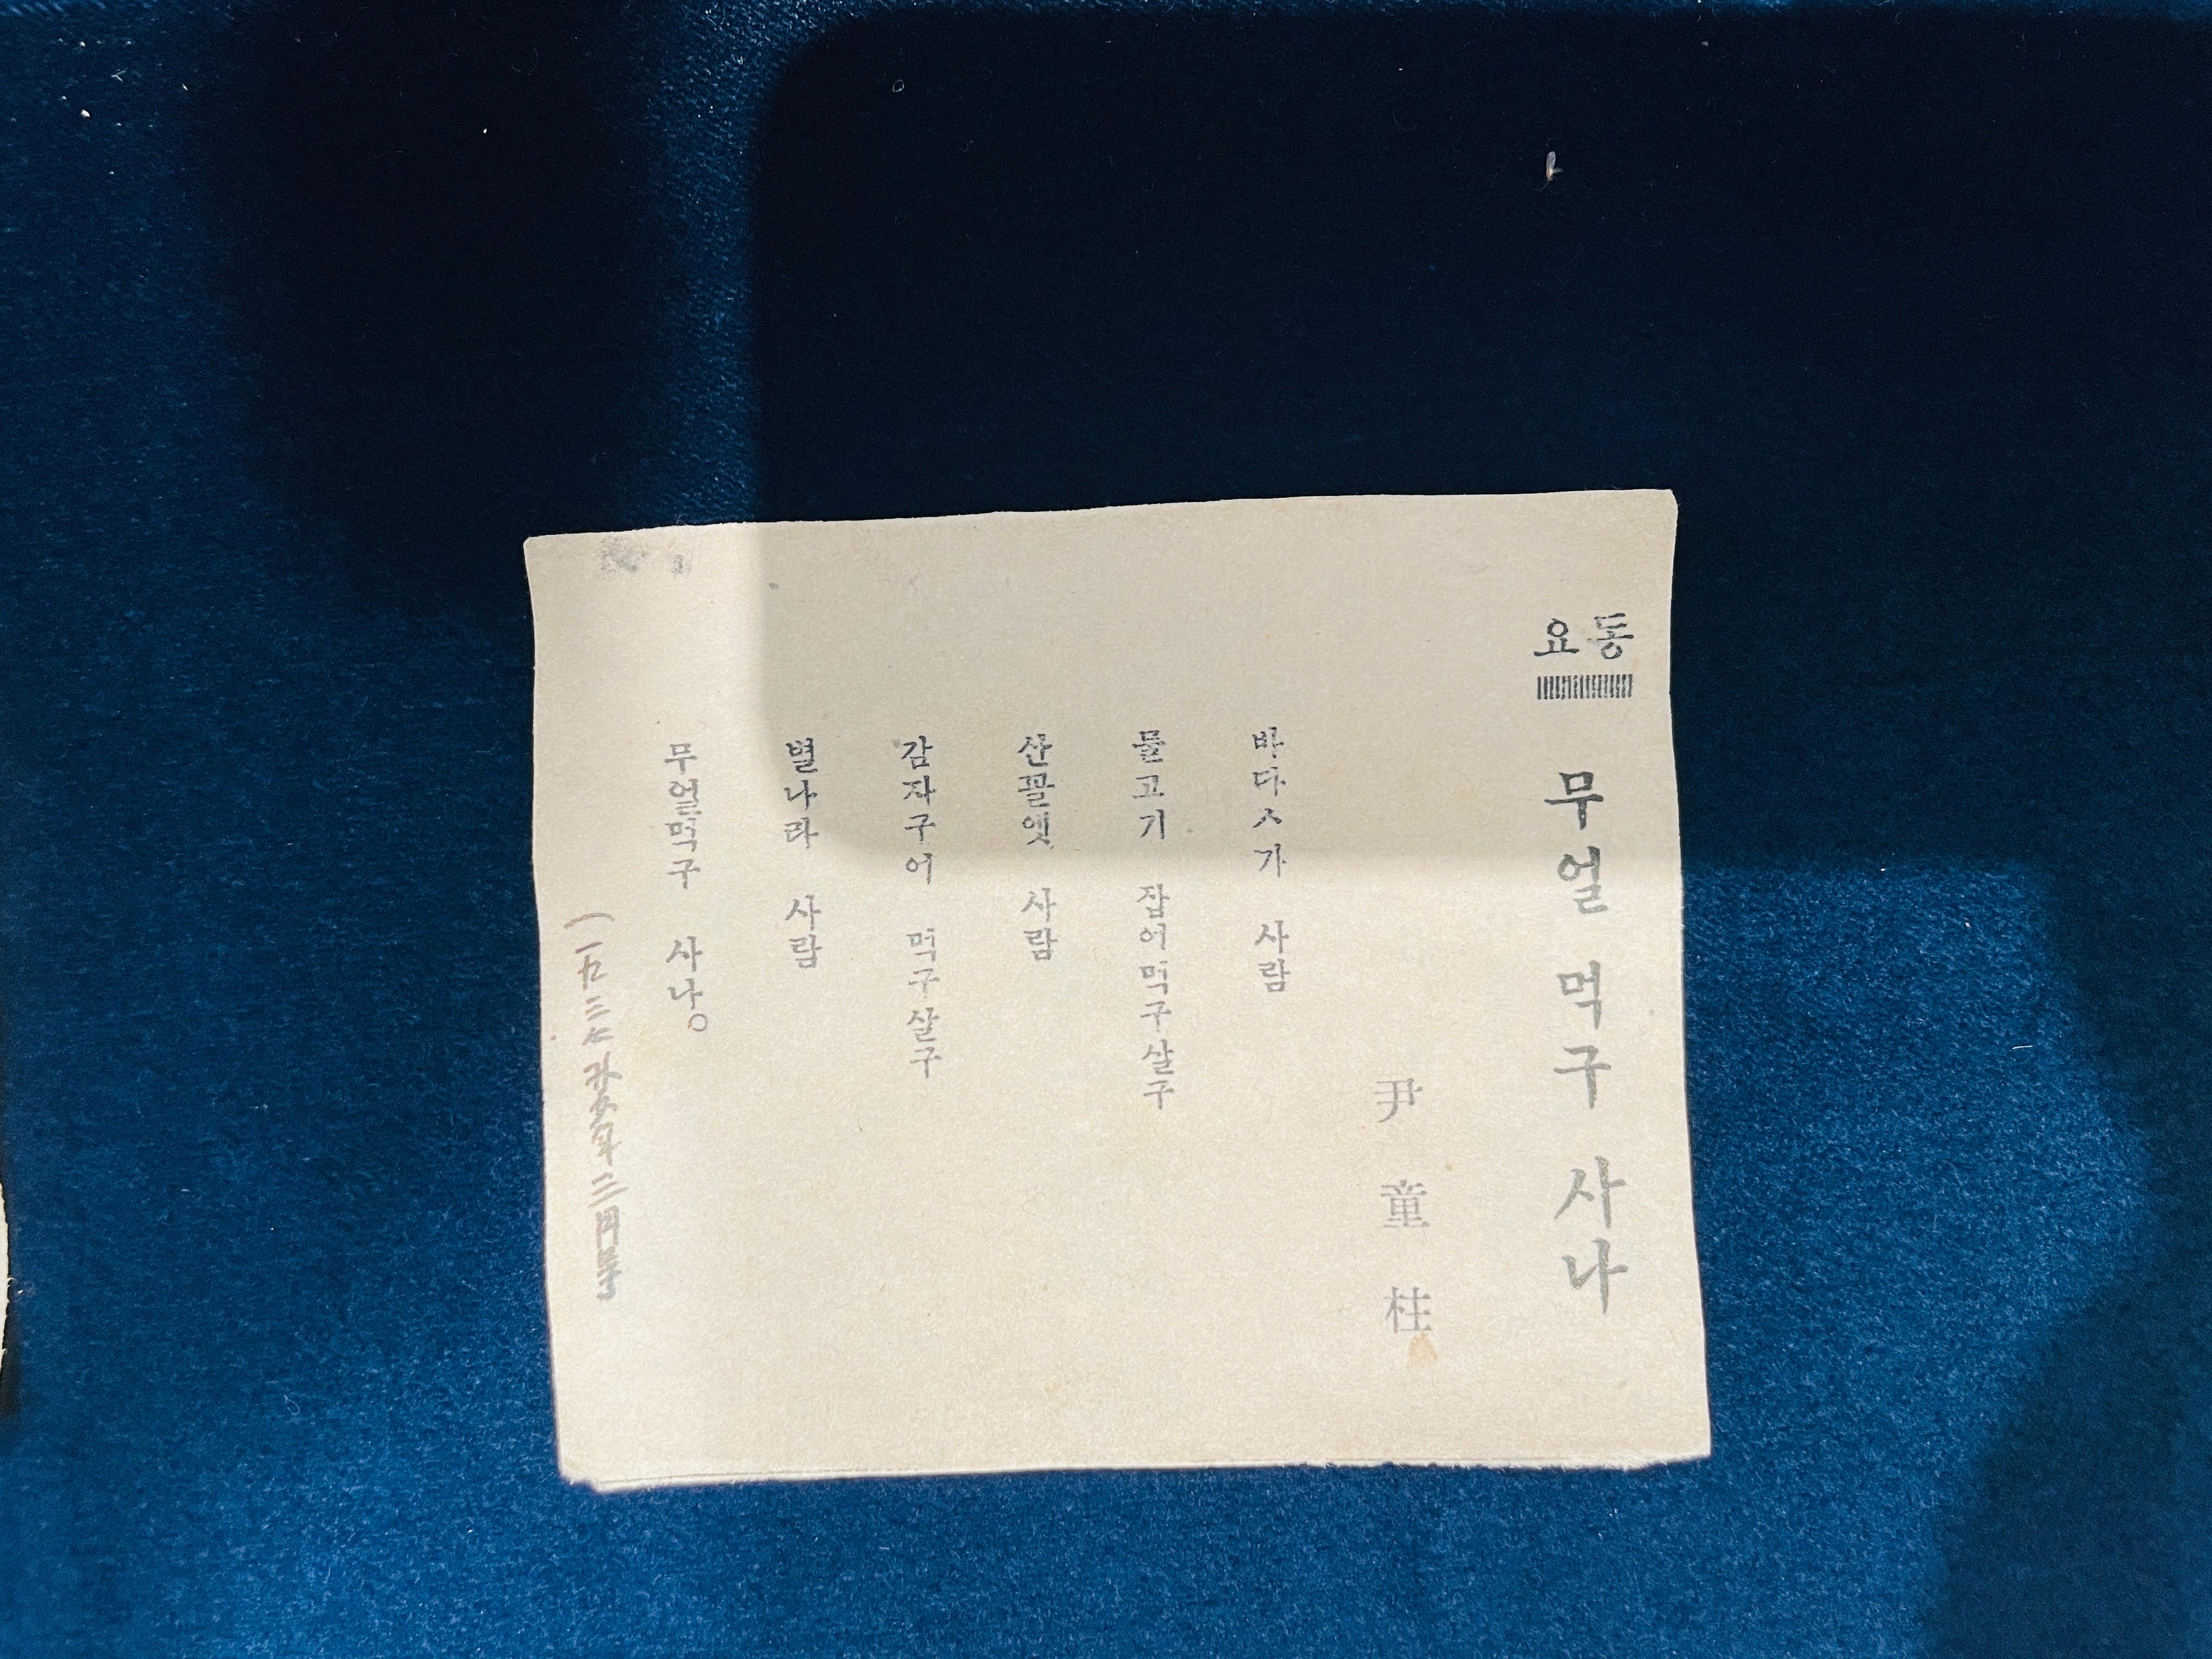 동요
무얼 먹구 사나
尹童柱
바다ㅅ가 사람
물고기 잡어먹구살구
산꼴엣 사람
감자구어 먹구살구
별나라 사람
무얼먹구 사나。
(一九三七